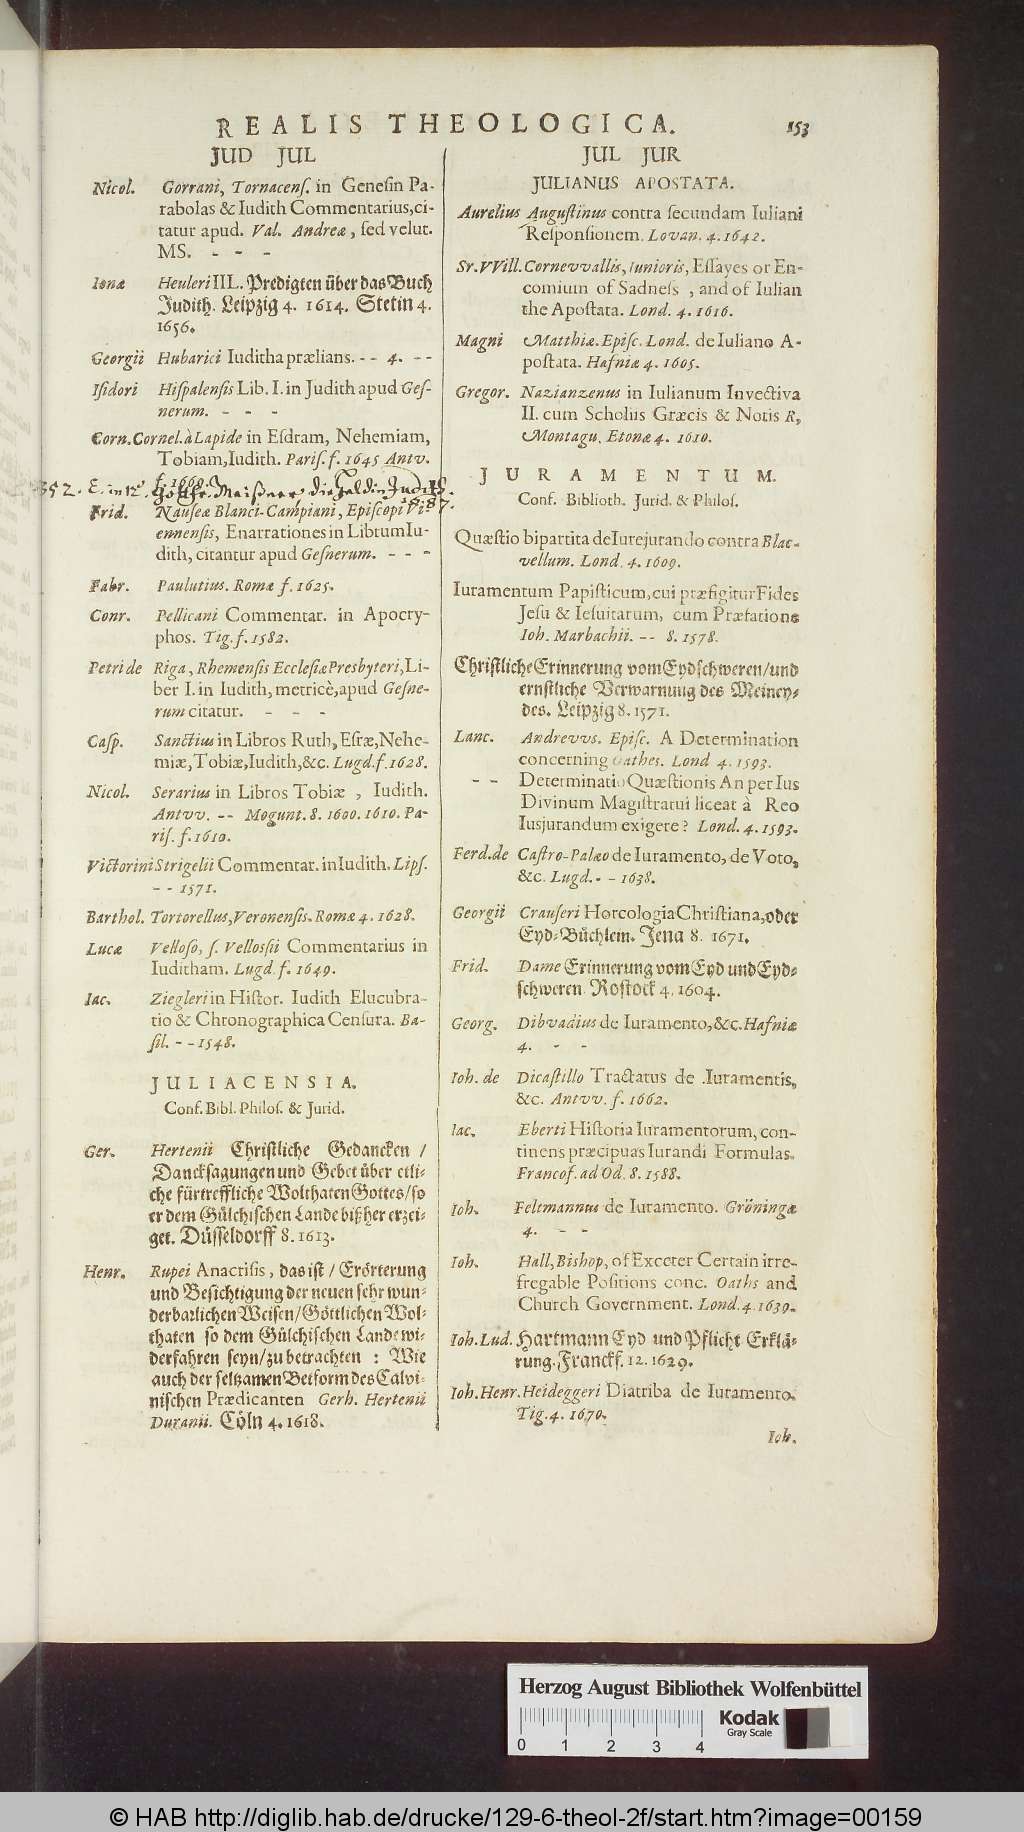 REALIS THEOLOGICA. 153
JUD JUL
Nicol. Gorrani, Tornacenſ. in Geneſin Pa-
rabolas & Iudith Commentarius, ci-
tatur apud. Val. Andreæ, ſed velut.
MS. - - -
Ionæ Heuleri IIL. Predigten über das Buch
Judith. Leipzig 4. 1614. Stetin 4.
1656.
Georgii Hubarici Iuditha prælians. - - 4. - -
Iſidori Hiſpalenſis Lib. I. in Judith apud Geſ-
nerum. - - -
Corn. Cornel. à Lapide in Eſdram, Nehemiam,
Tobiam, Iudith. Pariſ. f. 1645 Antv.
f. 1669.
352. E. in 12. Gottfr. Meißner, die Heldin Judith.
Frid. Nauſeæ Blanci-Campiani, Epiſcopi Vi-
ennenſis, Enarrationes in Librum Iu-
dith, citantur apud Geſnerum. - - -
Fabr. Paulutius. Romæ f. 1625.
Conr. Pellicani Commentar. in Apocry-
phos. Tig. f. 1582.
Petri de Riga, Rhemenſis Eccleſiæ Presbyteri, Li-
ber I. in Iudith, metricè, apud Geſne-
rum citatur. - - -
Caſp. Sanctius in Libros Ruth, Eſræ, Nehe-
miæ, Tobiæ, Iudith, &c. Lugd. f. 1628.
Nicol. Serarius in Libros Tobiæ, Iudith.
Antvv. -- Mogunt. 8. 1600. 1610. Pa-
riſ. f. 1610.
Victorini Strigelii Commentar. in Iudith. Lipſ.
- - 1571.
Barthol. Tortorellus, Veronenſis. Romæ 4. 1628.
Lucæ Velloſo, ſ. Velloſſii Commentarius in
Iuditham. Lugd. f. 1649.
Iac. Ziegleri in Hiſtor. Iudith Elucubra-
tio & Chronographica Cenſura. Ba-
ſil. - - 1548.
JULIACENSIA.
Conf. Bibl. Philoſ. & Jurid.
Ger. Hertenii Chriſtliche Gedancken /
Danckſagungen und Gebet über etli-
che fürtreffliche Wolthaten Gottes / ſo
er dem Gülchiſchen Lande bißher erzei-
get. Düſſeldorff 8. 1613.
Henr. Rupei Anacriſis, das iſt / Erörterung
und Beſichtigung der neuen ſehr wun-
derbarlichen Weiſen / Göttlichen Wol-
thaten ſo dem Gülchiſchen Lande wi-
derfahren ſeyn / zu betrachten : Wie
auch der ſeltzamen Betform des Calvi-
niſchen Prædicanten Gerh. Hertenii
Duranii. Cöln 4. 1618.
JUL JUR
JULIANUS APOSTATA.
Aurelius Auguſtinus contra ſecundam Iuliani
Reſponſionem. Lovan. 4. 1642.
Sr. VVill. Cornevvallis, Iunioris, Eſſayes or En-
comium of Sadneſs , and of Iulian
the Apoſtata. Lond. 4. 1616.
Magni Matthiæ. Epiſc. Lond. de Iuliano A-
poſtata. Hafniæ 4. 1605.
Gregor. Nazianzenus in Iulianum Invectiva
II. cum Scholiis Græcis & Notis R,
Montagu. Etonæ 4. 1610.
JURAMENTUM.
Conf. Biblioth. Jurid. & Philoſ.
Quæſtio bipartita de Iurejurando contra Blac-
vellum. Lond. 4. 1609.
Iuramentum Papiſticum, cui præfigitur Fides
Jeſu & Ieſuitarum, cum Præfatione
Ioh. Marbachii. -- 8. 1578.
Chriſtliche Erinnerung vom Eydſchweren / und
ernſtliche Verwarnung des Meiney-
des. Leipzig 8. 1571.
Lanc. Andrevvs. Epiſc. A Determination
concerning Oathes. Lond 4. 1593.
- - Determinatio Quæſtionis An per Ius
Divinum Magiſtratui liceat à Reo
Iusjurandum exigere? Lond. 4. 1593.
Ferd. de Caſtro-Palæo de Iuramento, de Voto,
&c. Lugd. - - 1638.
Georgii Crauſeri Horcologia Chriſtiana, oder
Eyd-Büchlein. Jena 8. 1671.
Frid. Dame Erinnerung vom Eyd und Eyd-
ſchweren. Roſtock 4. 1604.
Georg. Dibvadius de Iuramento, &c. Hafniæ
4. - -
Ioh. de Dicaſtillo Tractatus de Iuramentis,
&c. Antvv. f. 1662.
Iac. Eberti Hiſtoria Iuramentorum, con-
tinens præcipuas Iurandi Formulas.
Francof. ad Od. 8. 1588.
Ioh. Feltmannus de Iuramento. Gröningæ
4. - -
Ioh. Hall, Bishop, of Exceter Certain irre-
fregable Poſitions conc. Oaths and
Church Government. Lond. 4. 1639.
Ioh. Lud. Hartmann Eyd und Pflicht Erklä-
rung. Franckf. 12. 1629.
Ioh. Henr. Heideggeri Diatriba de Iuramento.
Tig. 4. 1670.
Ioh.
Herzog August Bibliothek Wolfenbüttel
0 1 2 3 4
Kodak
Gray Scale
© HAB http://diglib.hab.de/drucke/129-6-theol-2f/start.htm?image=00159